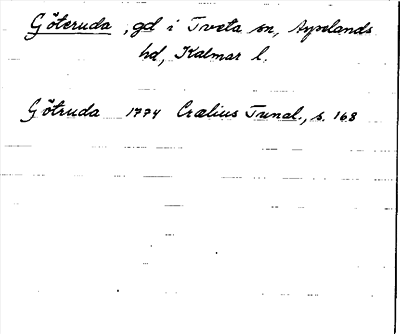 Göteruda, gd i Tveta sn, Aspelands
hd, Kalmar l.
Götruda 1774 Crælius Tunal., s. 168